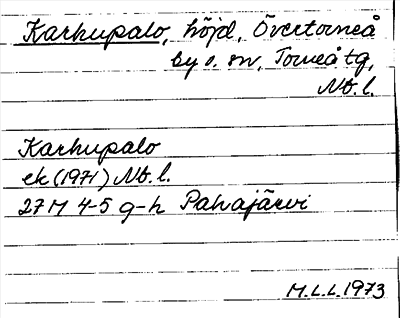 Karhupalo, höjd, Övertorneå
by o. sn, Torneå tg,
Nb. l.
Karhupalo
ek (1971) Nb. l.
27 M 4-5 g-h Pahajärvi
M.L.L. 1973